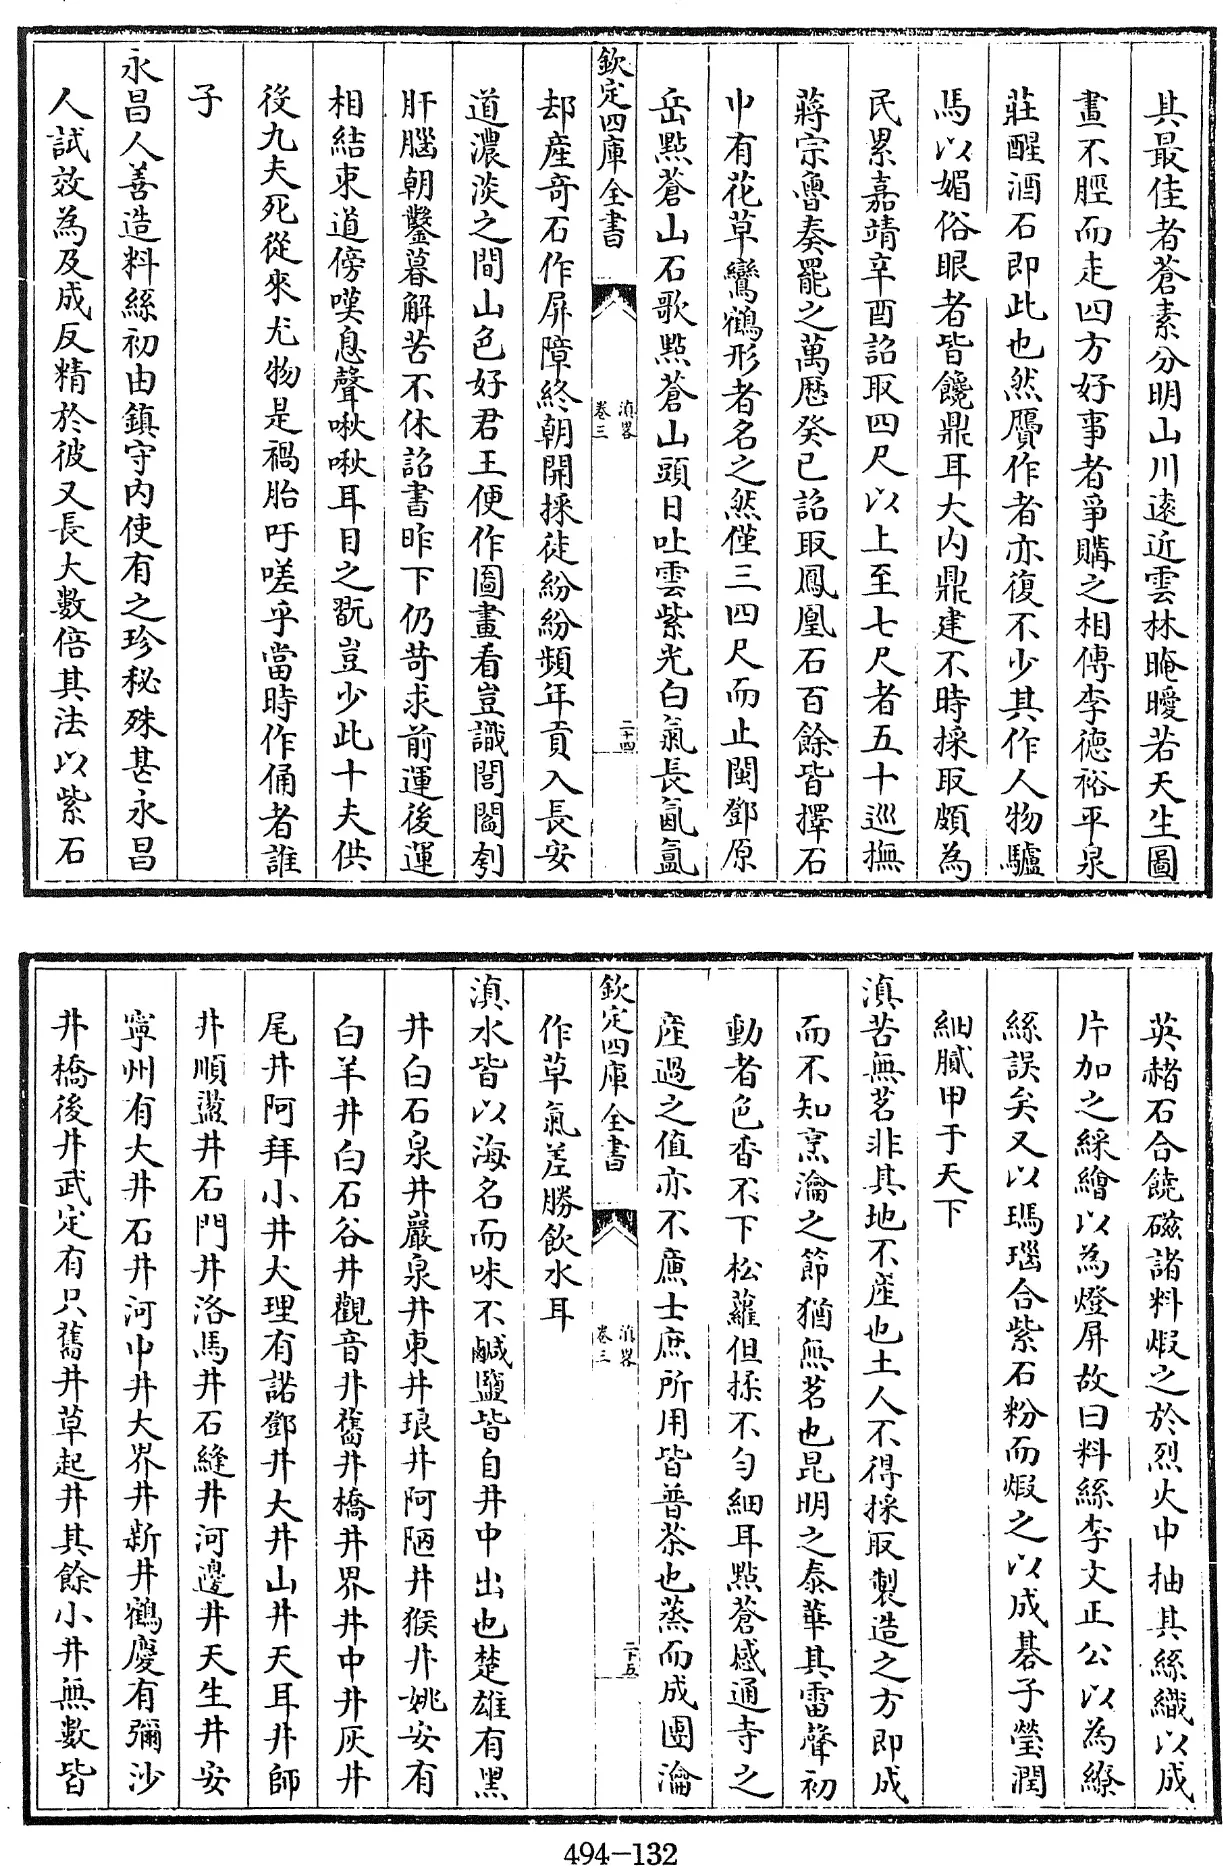 其最佳者蒼素分明山川遠近雲林晻曖若天生圖
畫不脛而走四方好事者爭購之相傳李德裕平泉
莊醒酒石即此也然贗作者亦復不少其作人物驢
馬以媚俗眼者皆饞鼎耳大内鼎建不時採取頗為
民累嘉靖辛酉詔取四尺以上至七尺者五十巡撫
蔣宗魯奏罷之萬厯癸巳詔取鳳凰石百餘皆擇石
中有花草鸞鶴形者名之然僅三四尺而止閩鄧原
岳點蒼山石歌點蒼山頭日吐雲紫光白氣長氤氲
欽定四庫全書
滇畧
卷三
二十四
却産奇石作屏障終朝開採徒紛紛頻年貢入長安
道濃淡之間山色好君王便作圖畫看豈識閭閻刳
肝腦朝鑿暮解苦不休詔書昨下仍苛求前運後運
相結束道傍嘆息聲啾啾耳目之翫豈少此十夫供
役九夫死從來尤物是禍胎吁嗟乎當時作俑者誰
子
永昌人善造料絲初由鎮守内使有之珍秘殊甚永昌
人試效為及成反精於彼又長大數倍其法以紫石
英赭石合饒磁諸料煆之於烈火中抽其絲織以成
片加之綵繪以為燈屏故曰料絲李文正公以為繚
絲誤矣又以瑪瑙合紫石粉而煆之以成碁子瑩潤
細膩甲于天下
滇苦無茗非其地不産也土人不得採取製造之方即成
而不知烹瀹之節猶無茗也昆明之泰華其雷聲初
動者色香不下松蘿但揉不匀細耳點蒼感通寺之
産過之值亦不廉士庶所用皆普茶也蒸而成團瀹
欽定四庫全書
滇畧
卷三
二十五
作草氣差勝飲水耳
滇水皆以海名而味不鹹鹽皆自井中出也楚雄有黑
井白石泉井嚴泉井東井琅井阿陋井猴井姚安有
白羊井白石谷井觀音井舊井橋井界井中井灰井
尾井阿拜小井大理有諾鄧井大井山井天耳井師
井順盪井石門井洛馬井石縫井河邊井天生井安
寧州有大井石井河中井大界井新井鶴慶有彌沙
井橋後井武定有只舊井草起井其餘小井無數皆
494-132